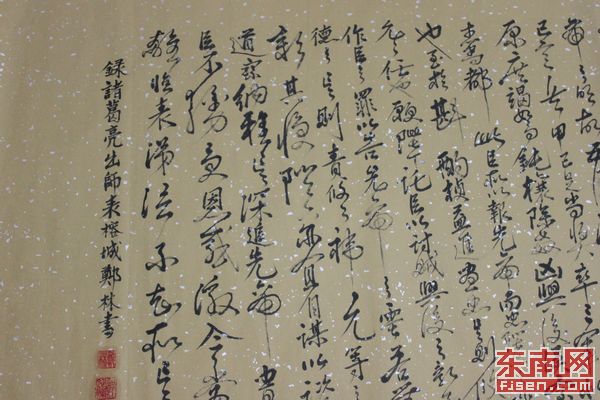 帝之明故
已定兵甲已足當獎率三軍
原庶竭駑鈍攘除奸凶興復
舊都此臣所以報先帝而忠陛
也至於斟酌損益進盡忠言則
允之任願陛下託臣以討賊興復之效
臣之罪以告先帝之靈若
德之言則責攸之禕允等之
彰其慢陛下亦宜自謀以諮
道察納雅言深追先帝
臣不勝受恩感激今當
離臨表涕泣不知所言
錄諸葛亮出師表榕城鄭林書
东南网
FJSEN.COM